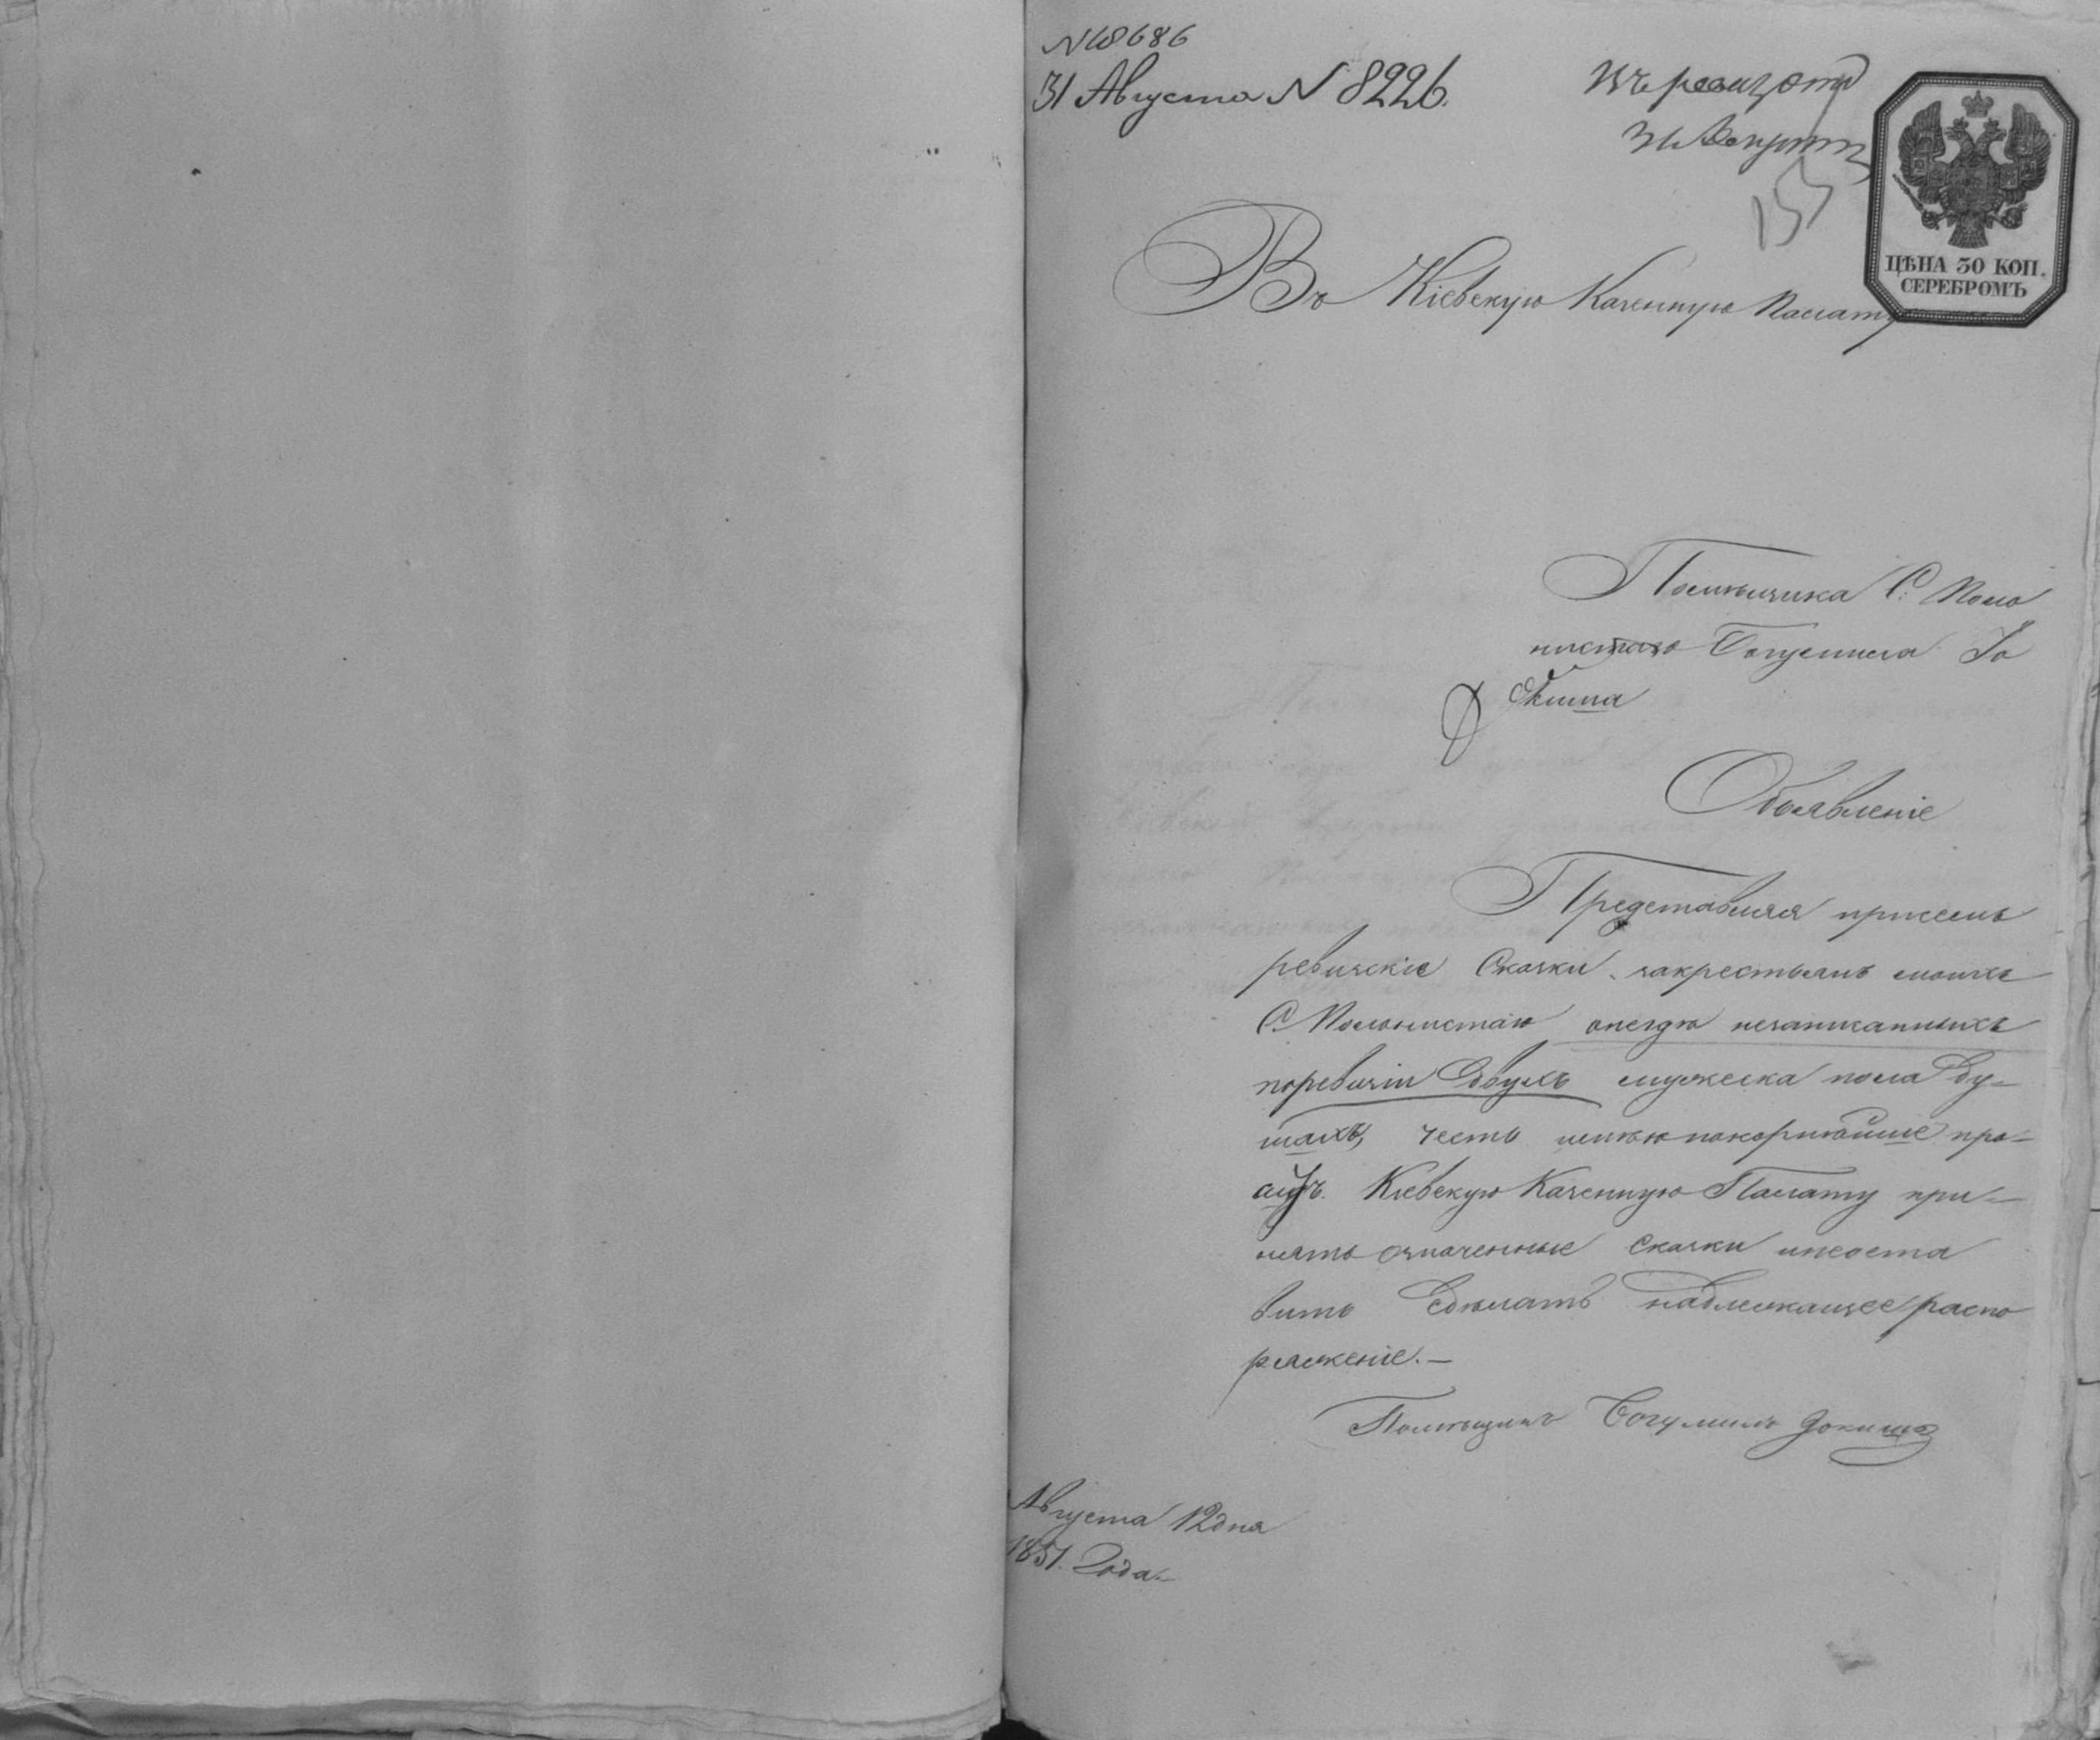 № 8686
31 Августа № 8226.
31 Августа
155
ЦѢНА 30 КОП.
СЕРЕБРОМЪ
Въ Кіевскую Казенную Палату
Помѣщика С. Поло
нистаго Богумила Іо
Обьявленіе
Представляя присемъ
ревизскіе Сказки, закрестьянъ моихъ
С. Полонистаго онездѣ незаписанныхъ
поревизіи Двухъ мужеска пола ду-
шахъ, честь имѣю покорнѣйше про-
сить Кіевскую Казенную Палату при-
нять означенные Сказки инеоста
вить сдѣлать надлежащее распо
ряженіе. —
Помѣщикъ Богумилъ
Августа 12 дня
1851. Года. —